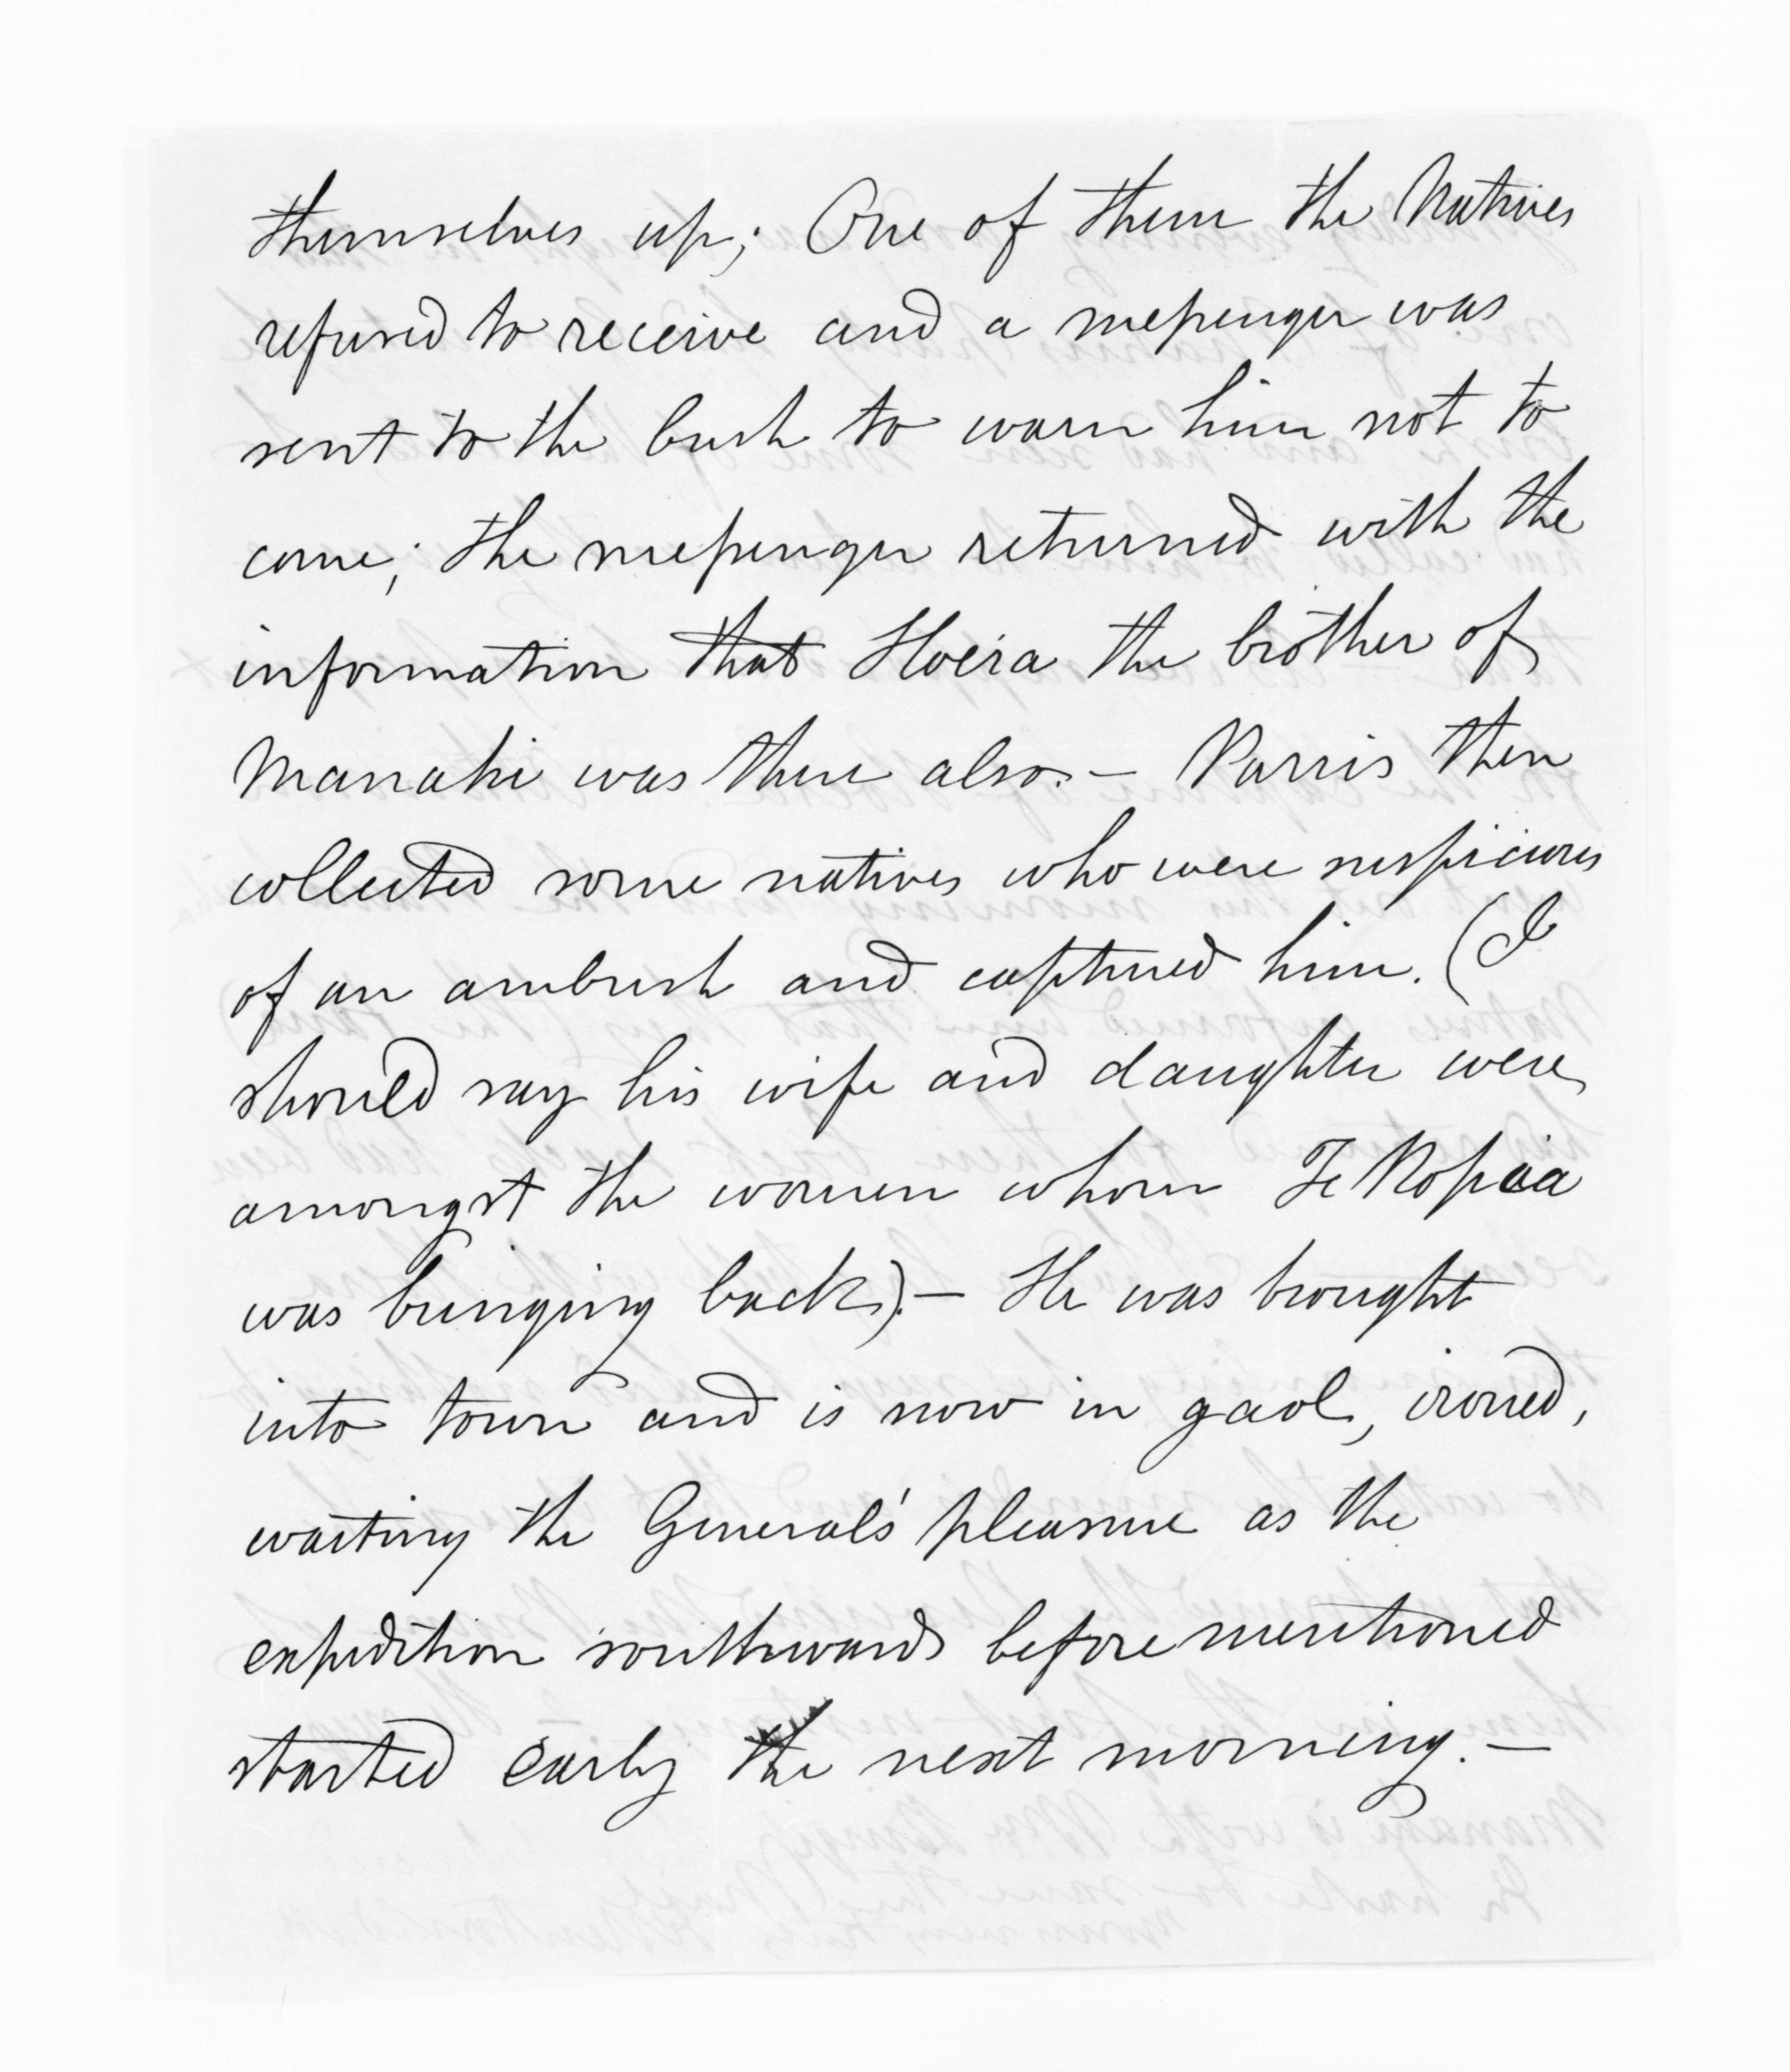 themselves up; One of them the Natives
refused to receive and a messenger was
sent to the bush to warn him not to
come; the messenger returned with the
information that Hoera the brother of
Manahi was there also. — Parris then
collected some natives who were suspicious
of an ambush and captured him. (I
should say his wife and daughter were
amongst the women whom Te Ropiha
was bringing back). — He was brought
into town and is now in gaol, ironed,
waiting the General's pleasure as the
expedition southwards before mentioned
started early the next morning. —